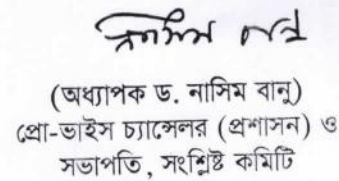 নাসিম বানু
(অধ্যাপক ড. নাসিম বানু)
প্রো-ভাইস চ্যান্সেলর (প্রশাসন) ও
সভাপতি, সংশ্লিষ্ট কমিটি